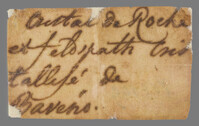 Cristal de Roche
et feldspath cris
tallisé de
Baveno.